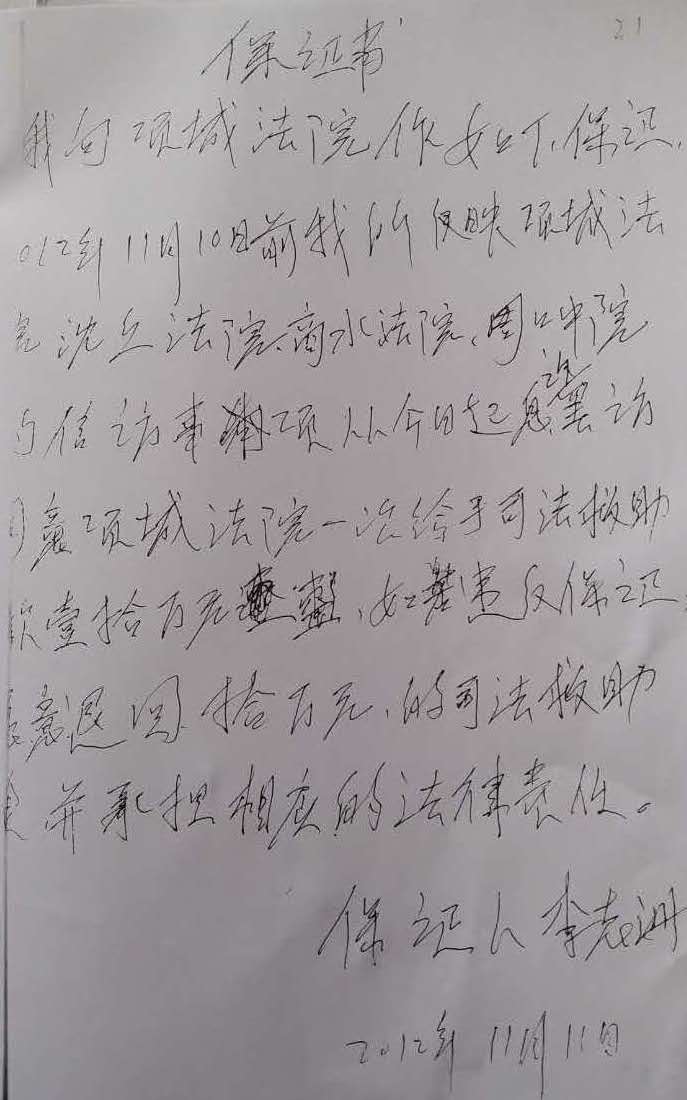 21
保证书
我向项城法院作如下保证,
012年11月10日前我所反映项城法
沈丘法院、商水法院、周口中院
信访事项从今日起息诉罢访
意项城法院一次给予司法救助
款壹拾万元、如违反保证
愿意退回拾万元、的司法救助
并承担相应的法律责任。
保证人李志洲
2012年11月11日